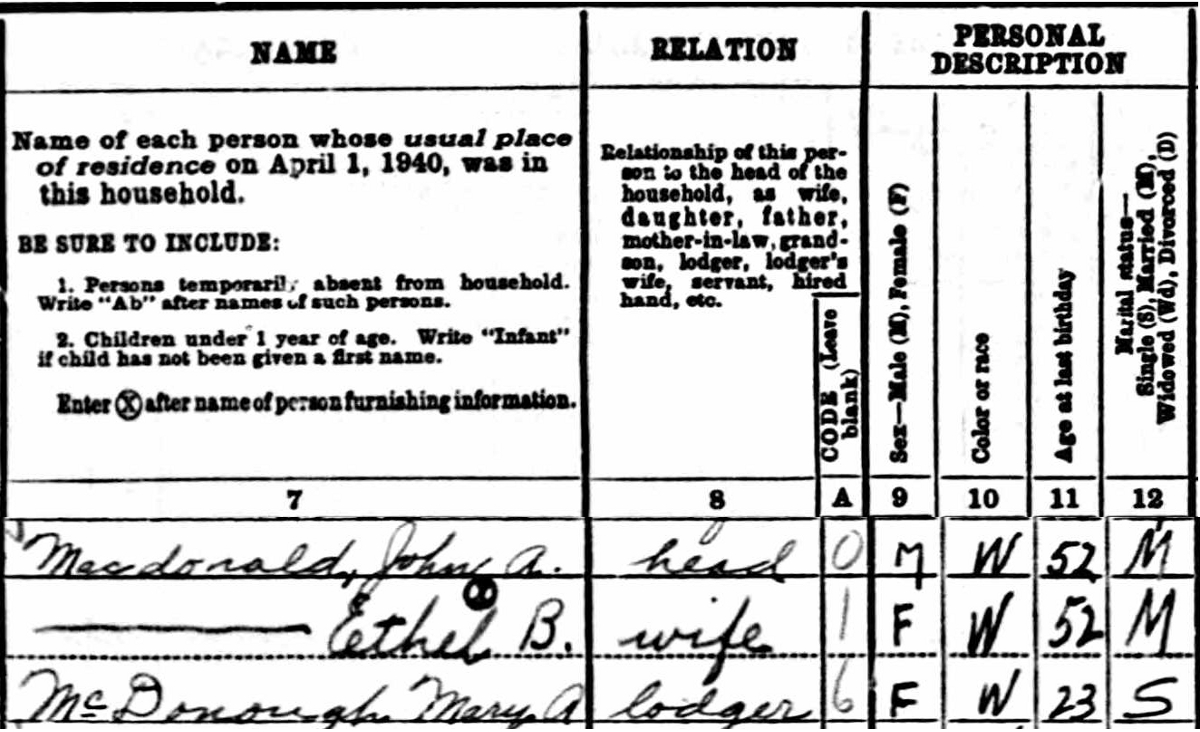 NAME
RELATION
PERSONAL
DESCRIPTION
Name of each person whose usual place
of residence on April 1, 1940, was in
this household.
BE SURE TO INCLUDE:
1. Persons temporarily absent from household.
Write "Ab" after names of such persons.
2. Children under 1 year of age. Write "Infant"
if child has not been given a first name.
Enter Ⓧ after name of person furnishing information.
Relationship of this per-
son to the head of the
household, as wife,
daughter, father,
mother-in-law, grand-
son, lodger, lodger's
wife, servant, hired
hand, etc.
CODE (Leave
blank)
Sex—Male (M), Female (F)
Color or race
Age at last birthday
Marital status—
Single (S), Married (M),
Widowed (Wd), Divorced (D)
7 8 A 9 10 11 12
Macdonald, John A. head 0 M W 52 M
Ethel Ⓧ B. wife 1 F W 52 M
McDonough, Mary A lodger 6 F W 23 S